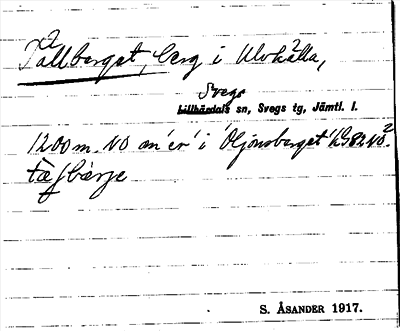 Tallberget, berg i Ulvkälla,
Svegs
Lillhärdals sn, Svegs tg, Jämtl. l.
1200 m. NO om er i Öljonsberget
S. ÅSANDER 1917.